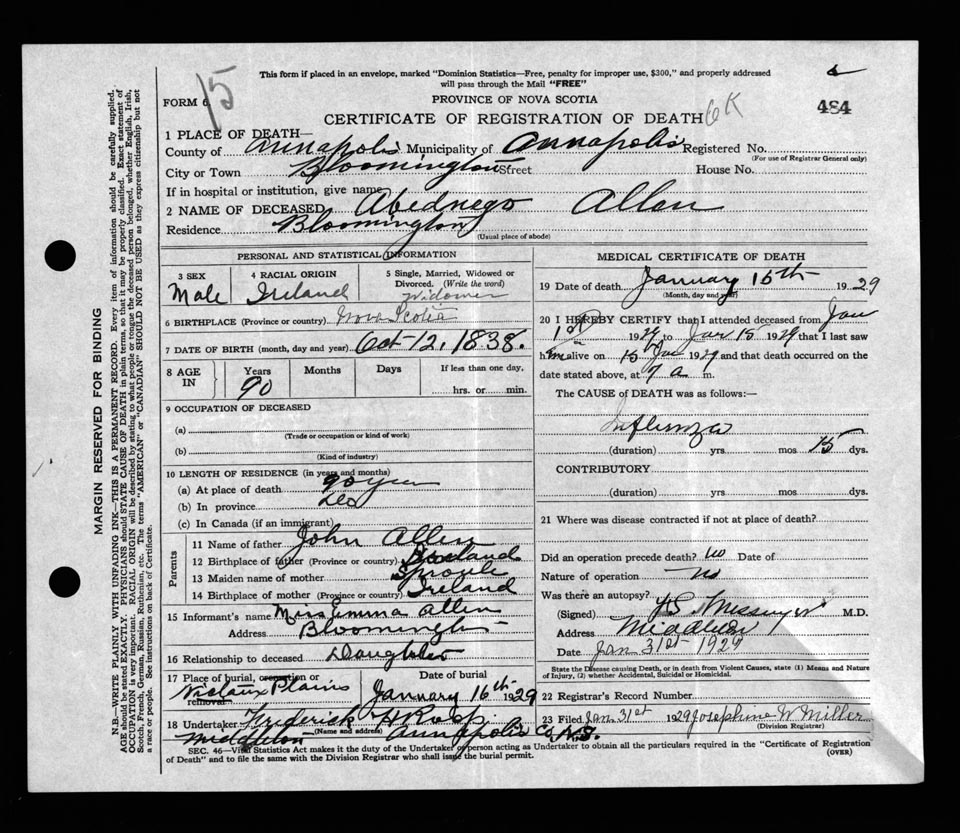 This form if placed in an envelope, marked "Dominion Statistics—Free, penalty for improper use, $300," and properly addressed
will pass through the Mail "FREE"
15
FORM 6
PROVINCE OF NOVA SCOTIA
CERTIFICATE OF REGISTRATION OF DEATH
6K
484
1 PLACE OF DEATH—
County of Annapolis Municipality of Annapolis Registered No.
(For use of Registrar General only)
City or Town Bloomington Street House No.
If in hospital or institution, give name
2 NAME OF DECEASED Abednego Allen
Residence Bloomington
(Usual place of abode)
PERSONAL AND STATISTICAL INFORMATION
3 SEX Male
4 RACIAL ORIGIN Ireland
5 Single, Married, Widowed or Divorced. (Write the word) Widower
6 BIRTHPLACE (Province or country) Nova Scotia
7 DATE OF BIRTH (month, day and year) Oct-12, 1838.
8 AGE IN Years 90 Months Days If less than one day, hrs. or min.
9 OCCUPATION OF DECEASED
(a)
(Trade or occupation or kind of work)
(b)
(Kind of industry)
10 LENGTH OF RESIDENCE (in years and months)
(a) At place of death 90 years
(b) In province
(c) In Canada (if an immigrant)
Parents
11 Name of father John Allen
12 Birthplace of father (Province or country) Ireland
13 Maiden name of mother Sproule
14 Birthplace of mother (Province or country) Ireland
15 Informant's name Miss Emma Allen
Address Bloomington
16 Relationship to deceased Daughter
17 Place of burial, cremation or removal Nictaux Plains
Date of burial January 16th 1929
18 Undertaker Frederick H Roop
(Name and address)
Middleton Annapolis Co N.S.
MEDICAL CERTIFICATE OF DEATH
19 Date of death January 15th 1929
(Month, day and year)
20 I HEREBY CERTIFY that I attended deceased from Jan
1st 1929 to Jan 15 1929 that I last saw
him alive on 15 Jan 1929 and that death occurred on the
date stated above, at 7 a m.
The CAUSE of DEATH was as follows:—
Influenza
(duration) yrs mos 15 dys.
CONTRIBUTORY
(duration) yrs. mos. dys.
21 Where was disease contracted if not at place of death?
Did an operation precede death? no Date of
Nature of operation no
Was there an autopsy?
(Signed) Messinger M.D.
Address Middleton
Date Jan 31st 1929
State the Disease causing Death, or in death from Violent Causes, state (1) Means and Nature
of Injury, (2) whether Accidental, Suicidal or Homicidal.
22 Registrar's Record Number
23 Filed Jan 31st 1929 Josephine W Miller
(Division Registrar)
SEC. 46—Vital Statistics Act makes it the duty of the Undertaker or person acting as Undertaker to obtain all the particulars required in the "Certificate of Registration
of Death" and to file the same with the Division Registrar who shall issue the burial permit.
(OVER)
MARGIN RESERVED FOR BINDING
N.B.—WRITE PLAINLY WITH UNFADING INK—THIS IS A PERMANENT RECORD. Every item of information should be carefully supplied.
AGE should be stated EXACTLY. PHYSICIANS should STATE CAUSE OF DEATH in plain terms, so that it may be properly classified. Exact statement of
OCCUPATION is very important. RACIAL ORIGIN will be described by stating to what people or tongue the deceased person belonged, whether English, Irish,
Scotch, French, German, Russian, Ruthenian, etc. The terms "AMERICAN" or "CANADIAN" SHOULD NOT BE USED as they express citizenship but not
a race or people. See instructions on back of Certificate.